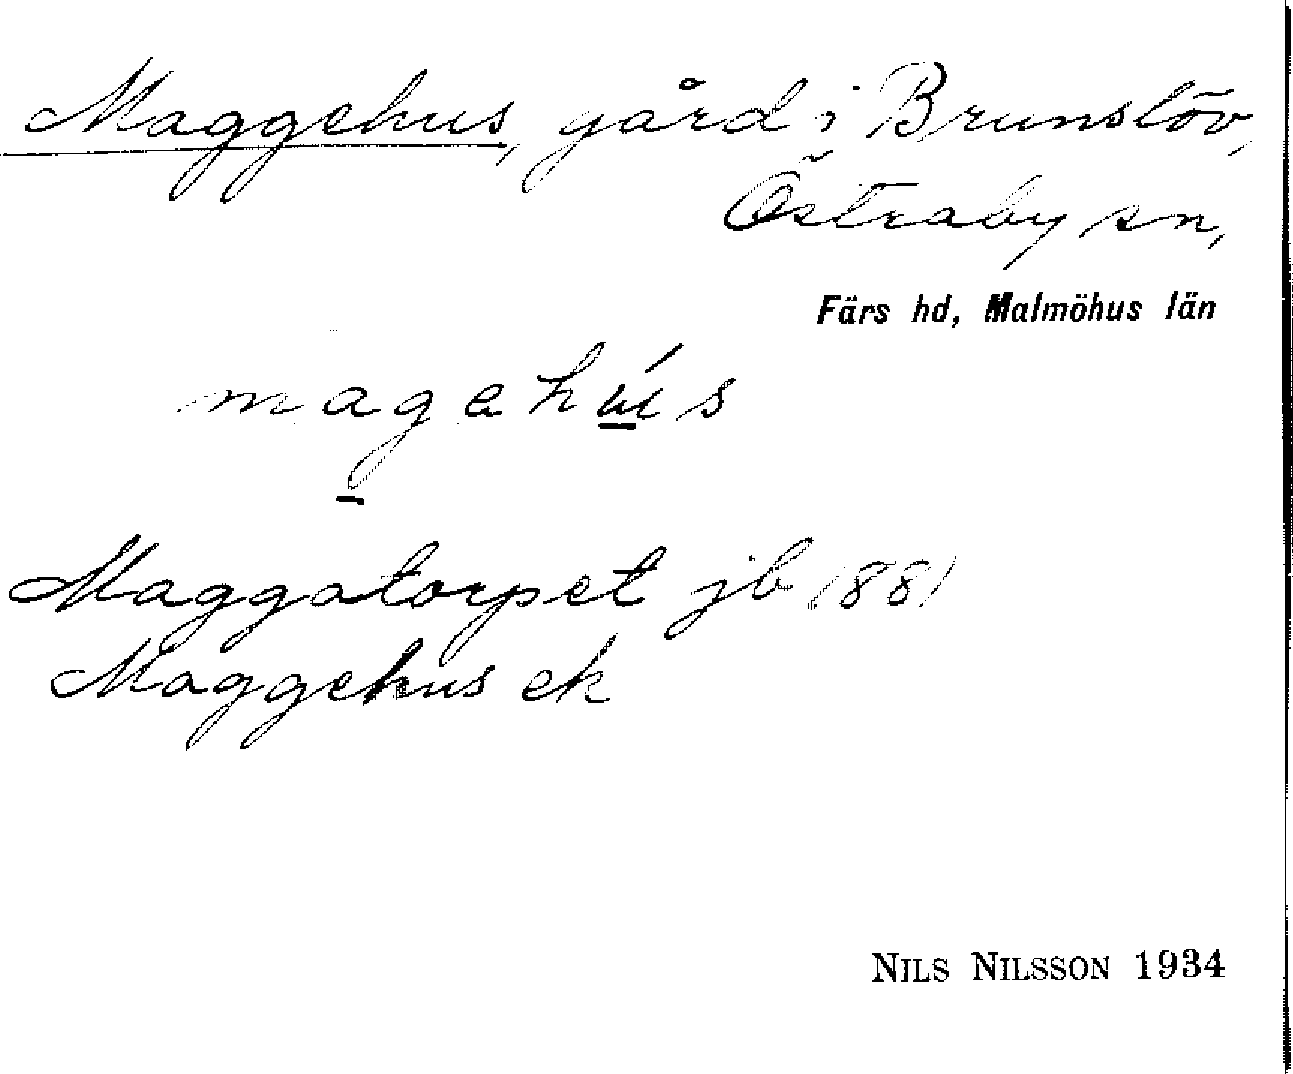 Maggehus, gård i Brunslöv,
Östraby sn,
Färs hd, Malmöhus län
magehús
Maggatorpet jb 1881
Maggehus ek
NILS NILSSON 1934